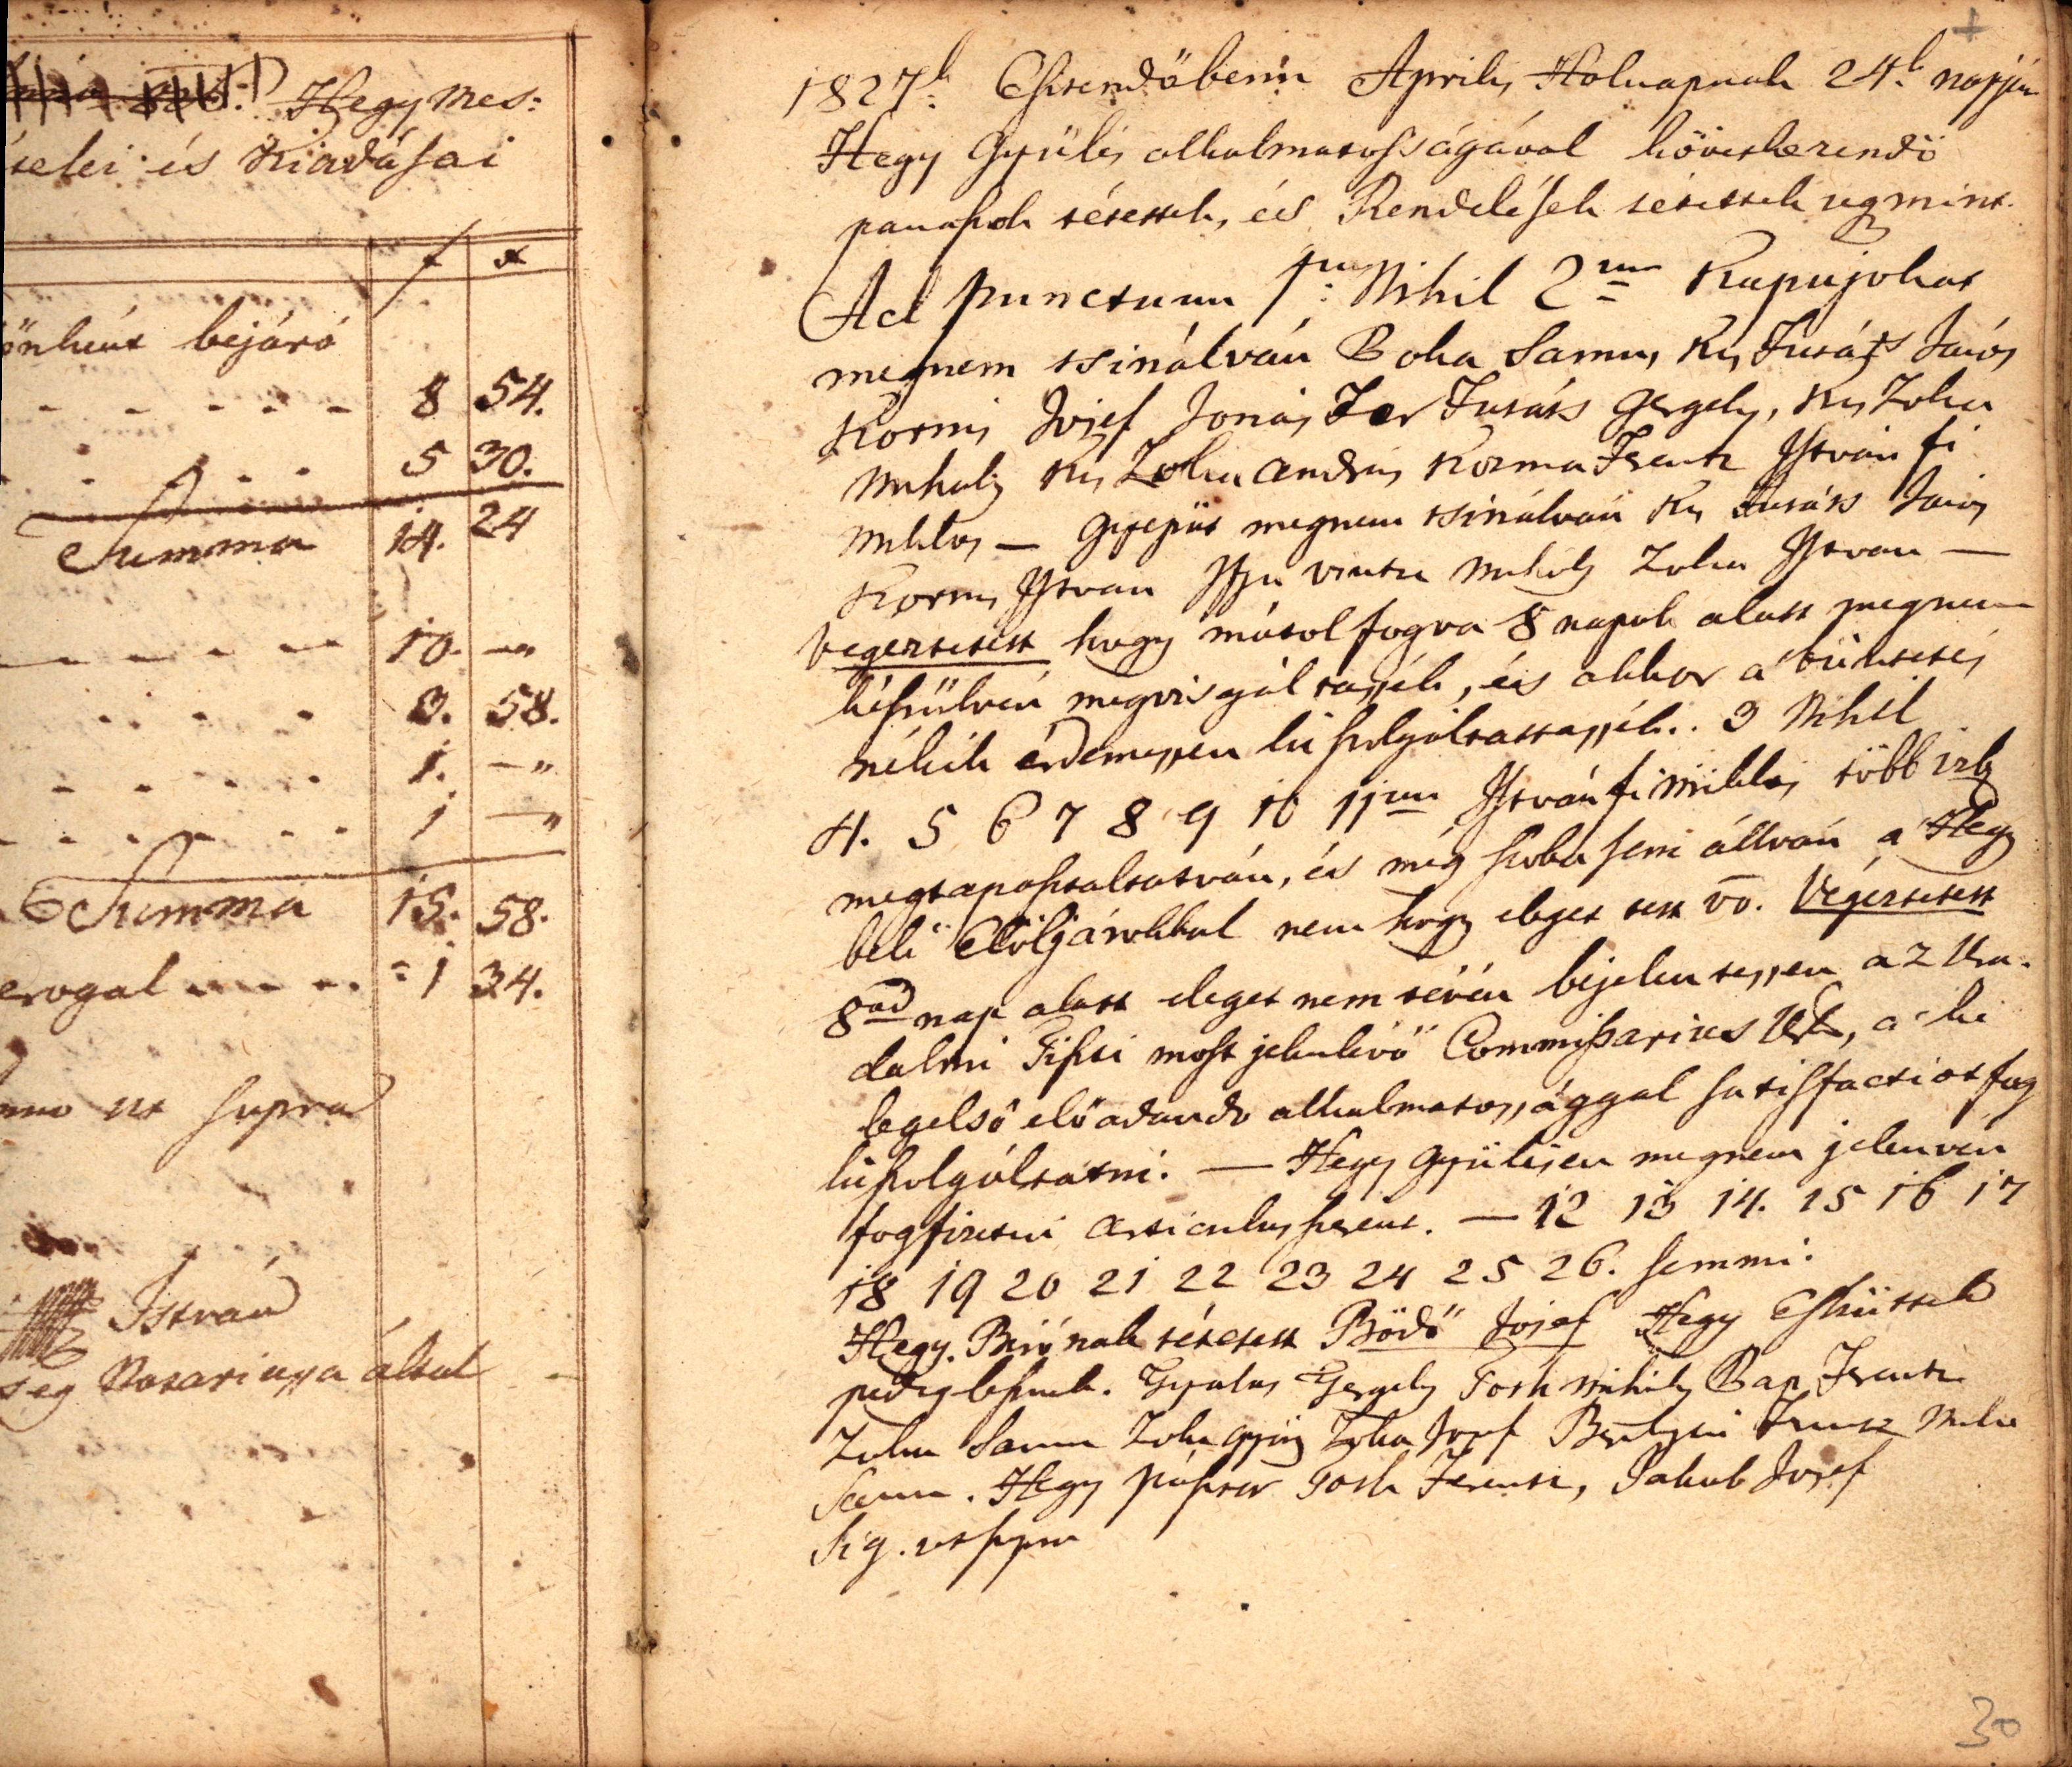 Hegy Mes:
telei és Kiadásai
f x
önként bejáró
8 54.
5 30.
Summa 14. 24
10. —„
3. 58.
1. —„
1 —„
Summa 15. 58.
erogal — — 1 34.
ut supra
István
ség Notariussa által
1827k Esztendőbenn Aprilis Holnapnak 24k napján
Hegy Gyülés alkalmatosságával következendő
panaszok tétettek, és Rendelések tétettek ugmint.
Ad punctum 1um Nihil 2um Kapujokat
megnem tsinálván Boka Samu, Kis Futáts János
Kornis Josef Jonás Futáts Gergely, Kis Zoka
Mihaly Kis Zoka András Kozma Ferentz Istvánfi
Miklos — Gyepüt megnem tsinálván Kis Futáts János
Kornis Istvan Ifju Vintze Mihály Zoka Istvan —
Vegeztetett hogy mátol fogva 8 napok alatt megnem
készülvén megvisgáltassék, és akkor a büntetés
nékik érdemessen kiszolgáltattassék.. 3 Nihil
4. 5 6 7 8 9 10 11um Istvánfi Miklos több izb
megtapasztaltatván, és még szoba sem állván a Hegy
beli Elöljárokkal nem hogy eleget tett vo. Végeztetett
8ad nap alatt eleget nem tévén béjelentessen az Ura-
dalmi Tiszti most jelenlévő Commissarius Urk, a ki
legelső előadando alkalmatossággal satisfactiot fog
kiszolgáltatni. — Hegy Gyülésen megnem jelenven
fog fizetni Articulus szerint. — 12 13 14. 15 16 17
18 19 20 21 22 23 24 25 26. semmi.
Hegy. Birónak tétetett Bödő Josef Hegy Esküttek
pedig lesznek. Gyulas Gergely Toth Mihály Bap Ferentz
Zoka Samu Zoka György Zoka Josef
Samu. Hegy pásztor Toth Ferentz, Jakab Josef
Sig. ut supra
30